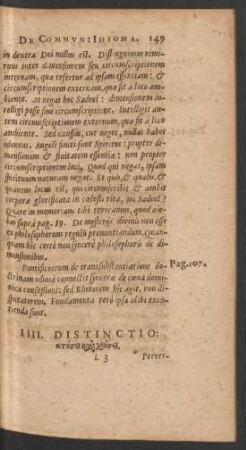 DE COMMVNI IDIOMA. 149
in dextra Dei nullus est. Distinguimus nimi-
rum inter dimensionem seu circumscriptionem
internam, quæ refertur ad ipsam essentiam: &
circumscriptionem externam, quæ fit à loco am-
biente. At negat hoc Sadeel: dimensionem in-
telligi posse sine circumscriptione. Intelligit au-
tem circumscriptionem externam, quæ fit à loco
ambiente. Sed caussas, cur neget, nullas habet
idoneas. Angeli finiti sunt Spiritus: propter di-
mensionem & finitatem essentiæ: non propter
circumscriptionem loci. Quod qui negat, ipsam
spirituum naturam negat. Et quis, & qualis, &
quantus locus est, qui circumscribit & ambit
corpora glorificata in cœlesti vita, mi Sadeel?
Quare in memoriam tibi revocamus, quod
supra pag. 89. De mysteriis divinis non
ex philosophorum regulis pronunciandum,
quam hic certè non sincerè philosopharis de
dimensionibus.
Pontificiorum de transsubstantiatione do-
ctrinam odiosè connectit sinceræ de cœna domi-
nica confessioni: sed Rhetorem hîc agit, non di-
sputatorem. Fundamenta verò ipsa alibi exeu-
tienda sunt.
Pag. 107.
IIII. DISTINCTIO:
L 3
Perver-